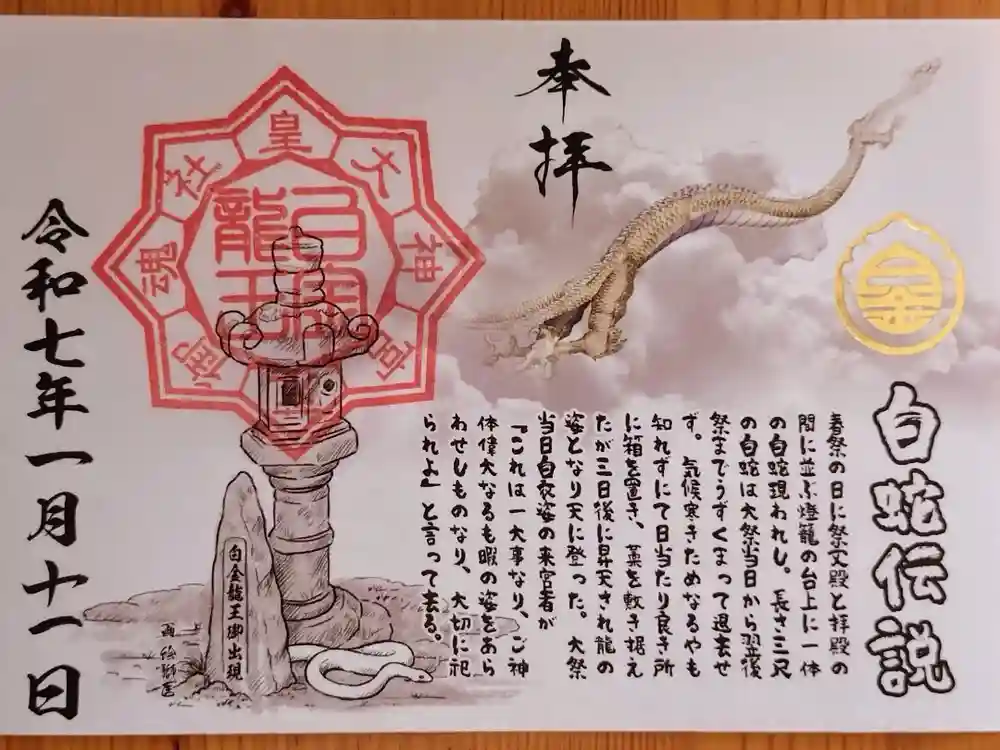 白蛇伝説
金
春祭の日に祭文殿と拝殿の
間に並ぶ燈籠の台上に一体
の白蛇現われし。長さ三尺
の白蛇は大祭当日から翌後
祭までうずくまって退去せ
ず。気候寒きためなるやも
知れずにて日当たり良き所
に箱を置き、藁を敷き据え
たが三日後に昇天され龍の
姿となり天に登った。大祭
当日白衣姿の来宮者が
『これは一大事なり、ご神
体偉大なるも暇の姿をあら
わせしものなり、大切に祀
られよ』と言って去る。
奉拝
皇大神宮御魂社
龍王
白金龍王御出現
令和七年一月十一日